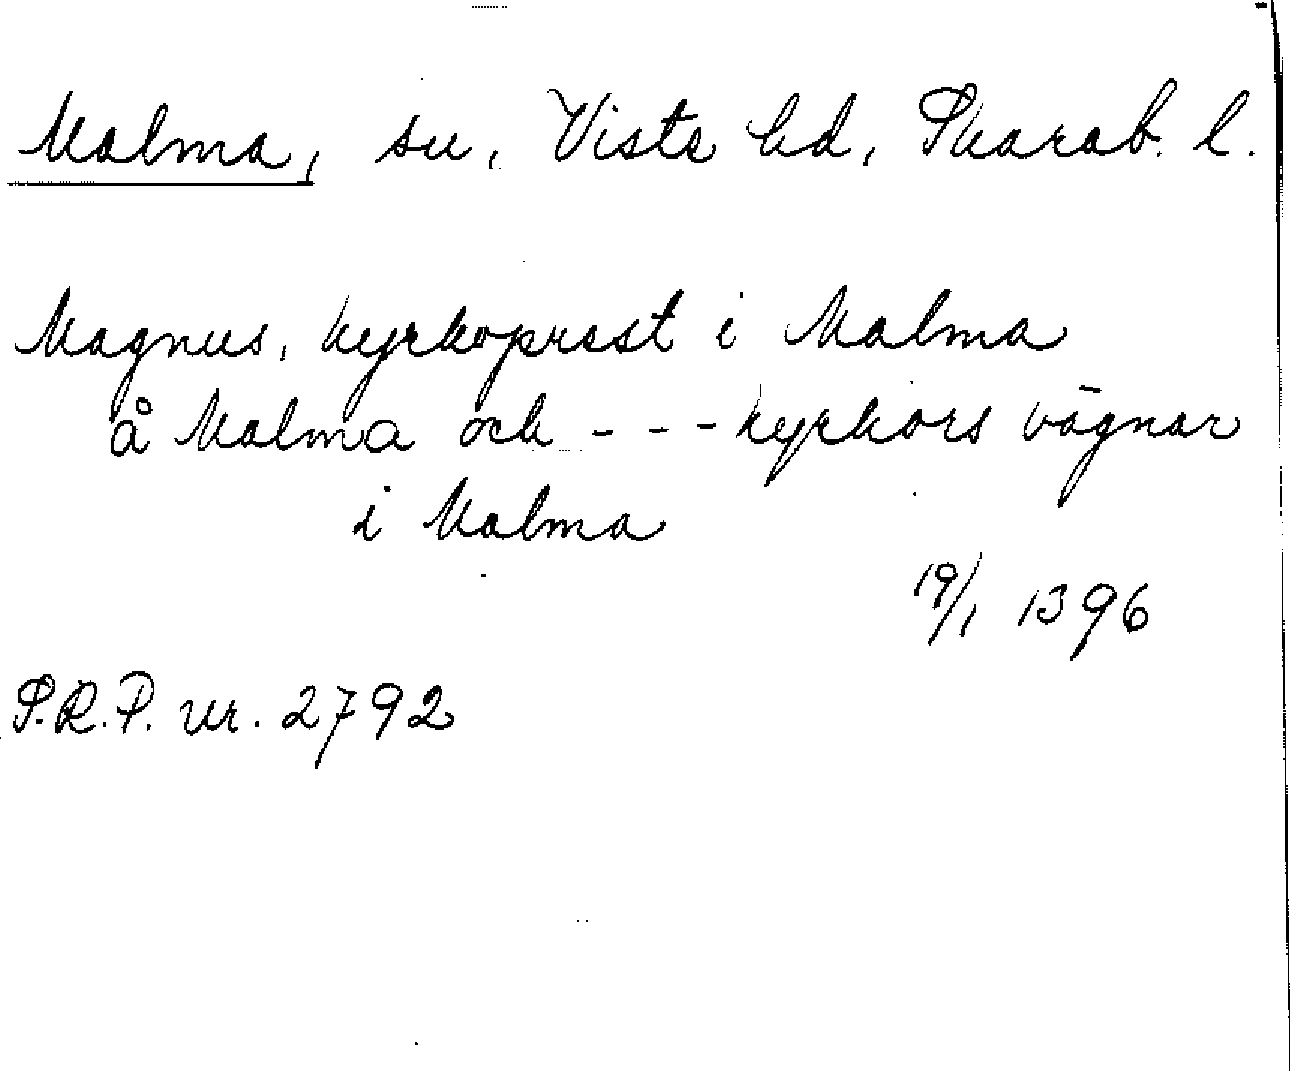 Malma, sn, Viste hd, Skarab. l.
Magnus, kyrkoprest i Malma
å Malma och - - - kyrkors vägnar
i Malma
19/1 1396
S.R.P. nr. 2792